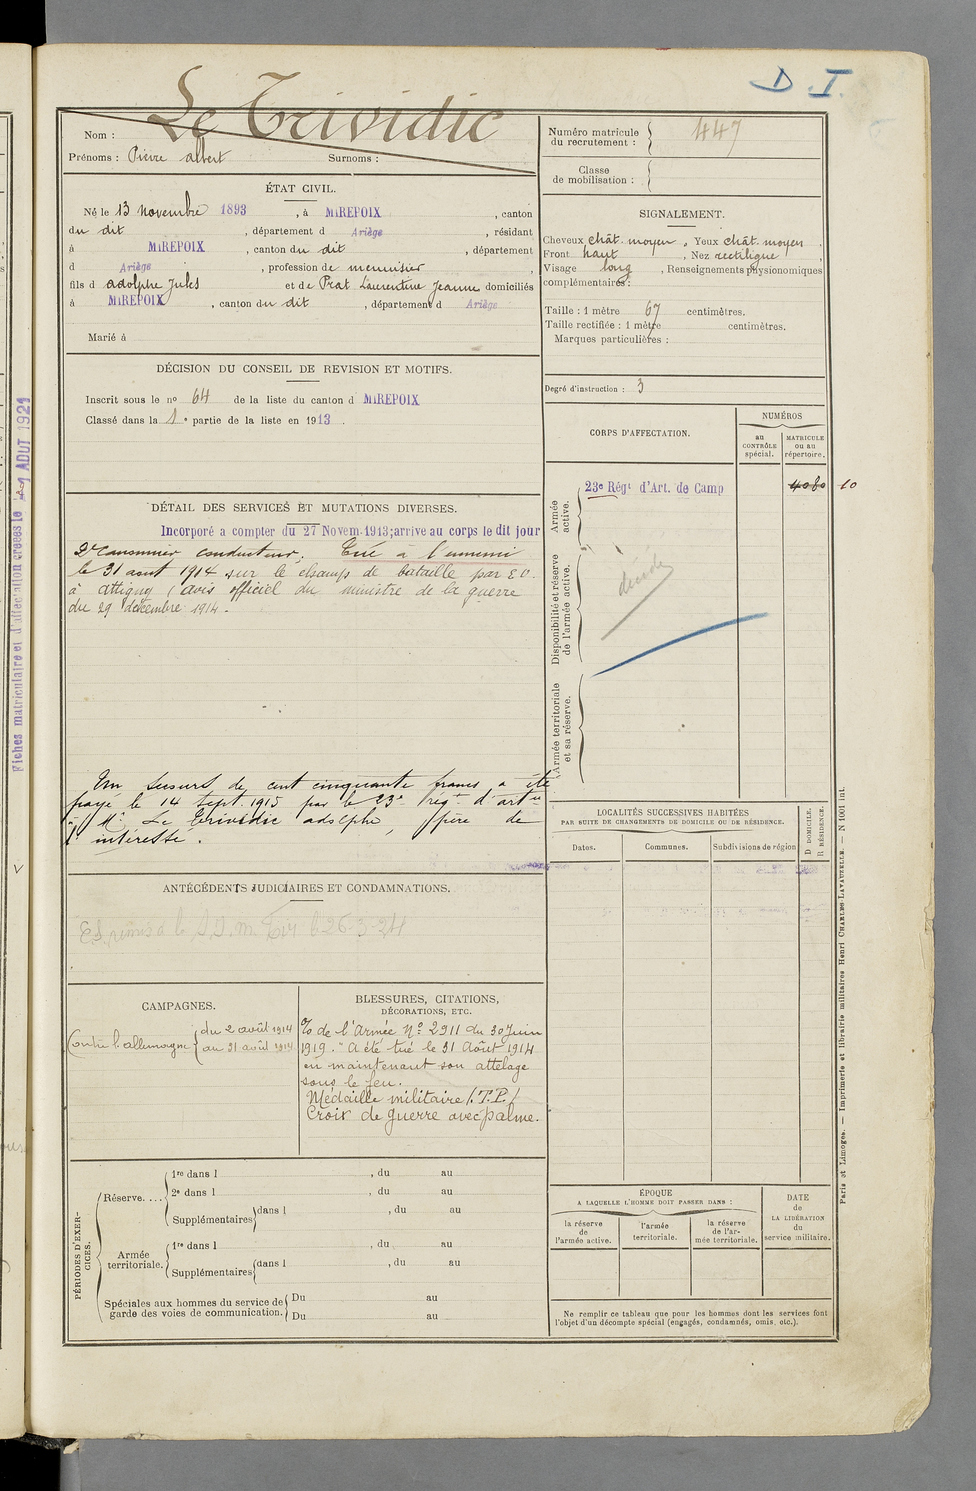 D. I.
Le Trividic
Nom :
Prénoms : Pierre albert Surnoms :
Numéro matricule
du recrutement : 447
Classe
de mobilisation :
ÉTAT CIVIL.
Né le 13 novembre 1893, à MIREPOIX, canton
du dit, département d Ariège, résidant
à MIREPOIX, canton du dit, département
d Ariège, profession de menuisier,
fils d adolphe Jules et de Prat Laurentine Jeanne domiciliés
à MIREPOIX, canton du dit, département d Ariège
Marié à
SIGNALEMENT.
Cheveux chât. moyen, Yeux chât. moyen,
Front haut, Nez rectiligne,
Visage long, Renseignements physionomiques
complémentaires :
Taille : 1 mètre 67 centimètres.
Taille rectifiée : 1 mètre centimètres.
Marques particulières :
Degré d'instruction : 3
DÉCISION DU CONSEIL DE REVISION ET MOTIFS.
Inscrit sous le nº 64 de la liste du canton d MIREPOIX
Classé dans la 1e partie de la liste en 1913.
CORPS D'AFFECTATION.
NUMÉROS
au
CONTRÔLE
spécial.
MATRICULE
ou au
répertoire.
Armée
active.
23e Régt d'Art. de Camp
4080 10
Disponibilité et réserve
de l'armée active.
décédé
Armée territoriale
et sa réserve.
DÉTAIL DES SERVICES ET MUTATIONS DIVERSES.
Incorporé a compter du 27 Novem. 1913; arrive au corps le dit jour
2e canonnier conducteur. Tué a l'ennemi
le 31 aout 1914 sur le champs de bataille par E.O.
à Attigny (avis officiel du ministre de la guerre
du 29 décembre 1914.
Un secours de cent cinquante francs a été
payé le 14 Sept. 1915 par le 23e régt d'artie
à Mr Le Trividic adolphe, père de
l'intéressé.
LOCALITÉS SUCCESSIVES HABITÉES
PAR SUITE DE CHANGEMENTS DE DOMICILE OU DE RÉSIDENCE.
D DOMICILE.
R RÉSIDENCE.
Dates.
Communes.
Subdivisions de région
ANTÉCÉDENTS JUDICIAIRES ET CONDAMNATIONS.
26-3-24
CAMPAGNES.
Contre l'allemagne
du 2 août 1914
au 31 août 1914
BLESSURES, CITATIONS,
DÉCORATIONS, ETC.
O/ de l'Armée Nº 2911 du 30 Juin
1919. "A été tué le 31 Août 1914
en maintenant son attelage
sous le feu.
Médaille militaire (T.P.)
Croix de guerre avec palme.
PÉRIODES D'EXER-
CICES.
Réserve....
1re dans l , du au
2e dans l , du au
Supplémentaires dans l , du au
Armée
territoriale.
1re dans l , du au
Supplémentaires dans l , du au
Spéciales aux hommes du service de
garde des voies de communication.
Du au
Du au
ÉPOQUE
A LAQUELLE L'HOMME DOIT PASSER DANS :
la réserve
de
l'armée active.
l'armée
territoriale.
la réserve
de l'ar-
mée territoriale.
DATE
de
LA LIBÉRATION
du
service militaire.
Ne remplir ce tableau que pour les hommes dont les services font
l'objet d'un décompte spécial (engagés, condamnés, omis, etc.).
Fiches matriculaire et d'affectation créées le 1 AOUT 1921
Paris et Limoges. — Imprimerie et librairie militaires Henri CHARLES-LAVAUZELLE. — N 1001 int.